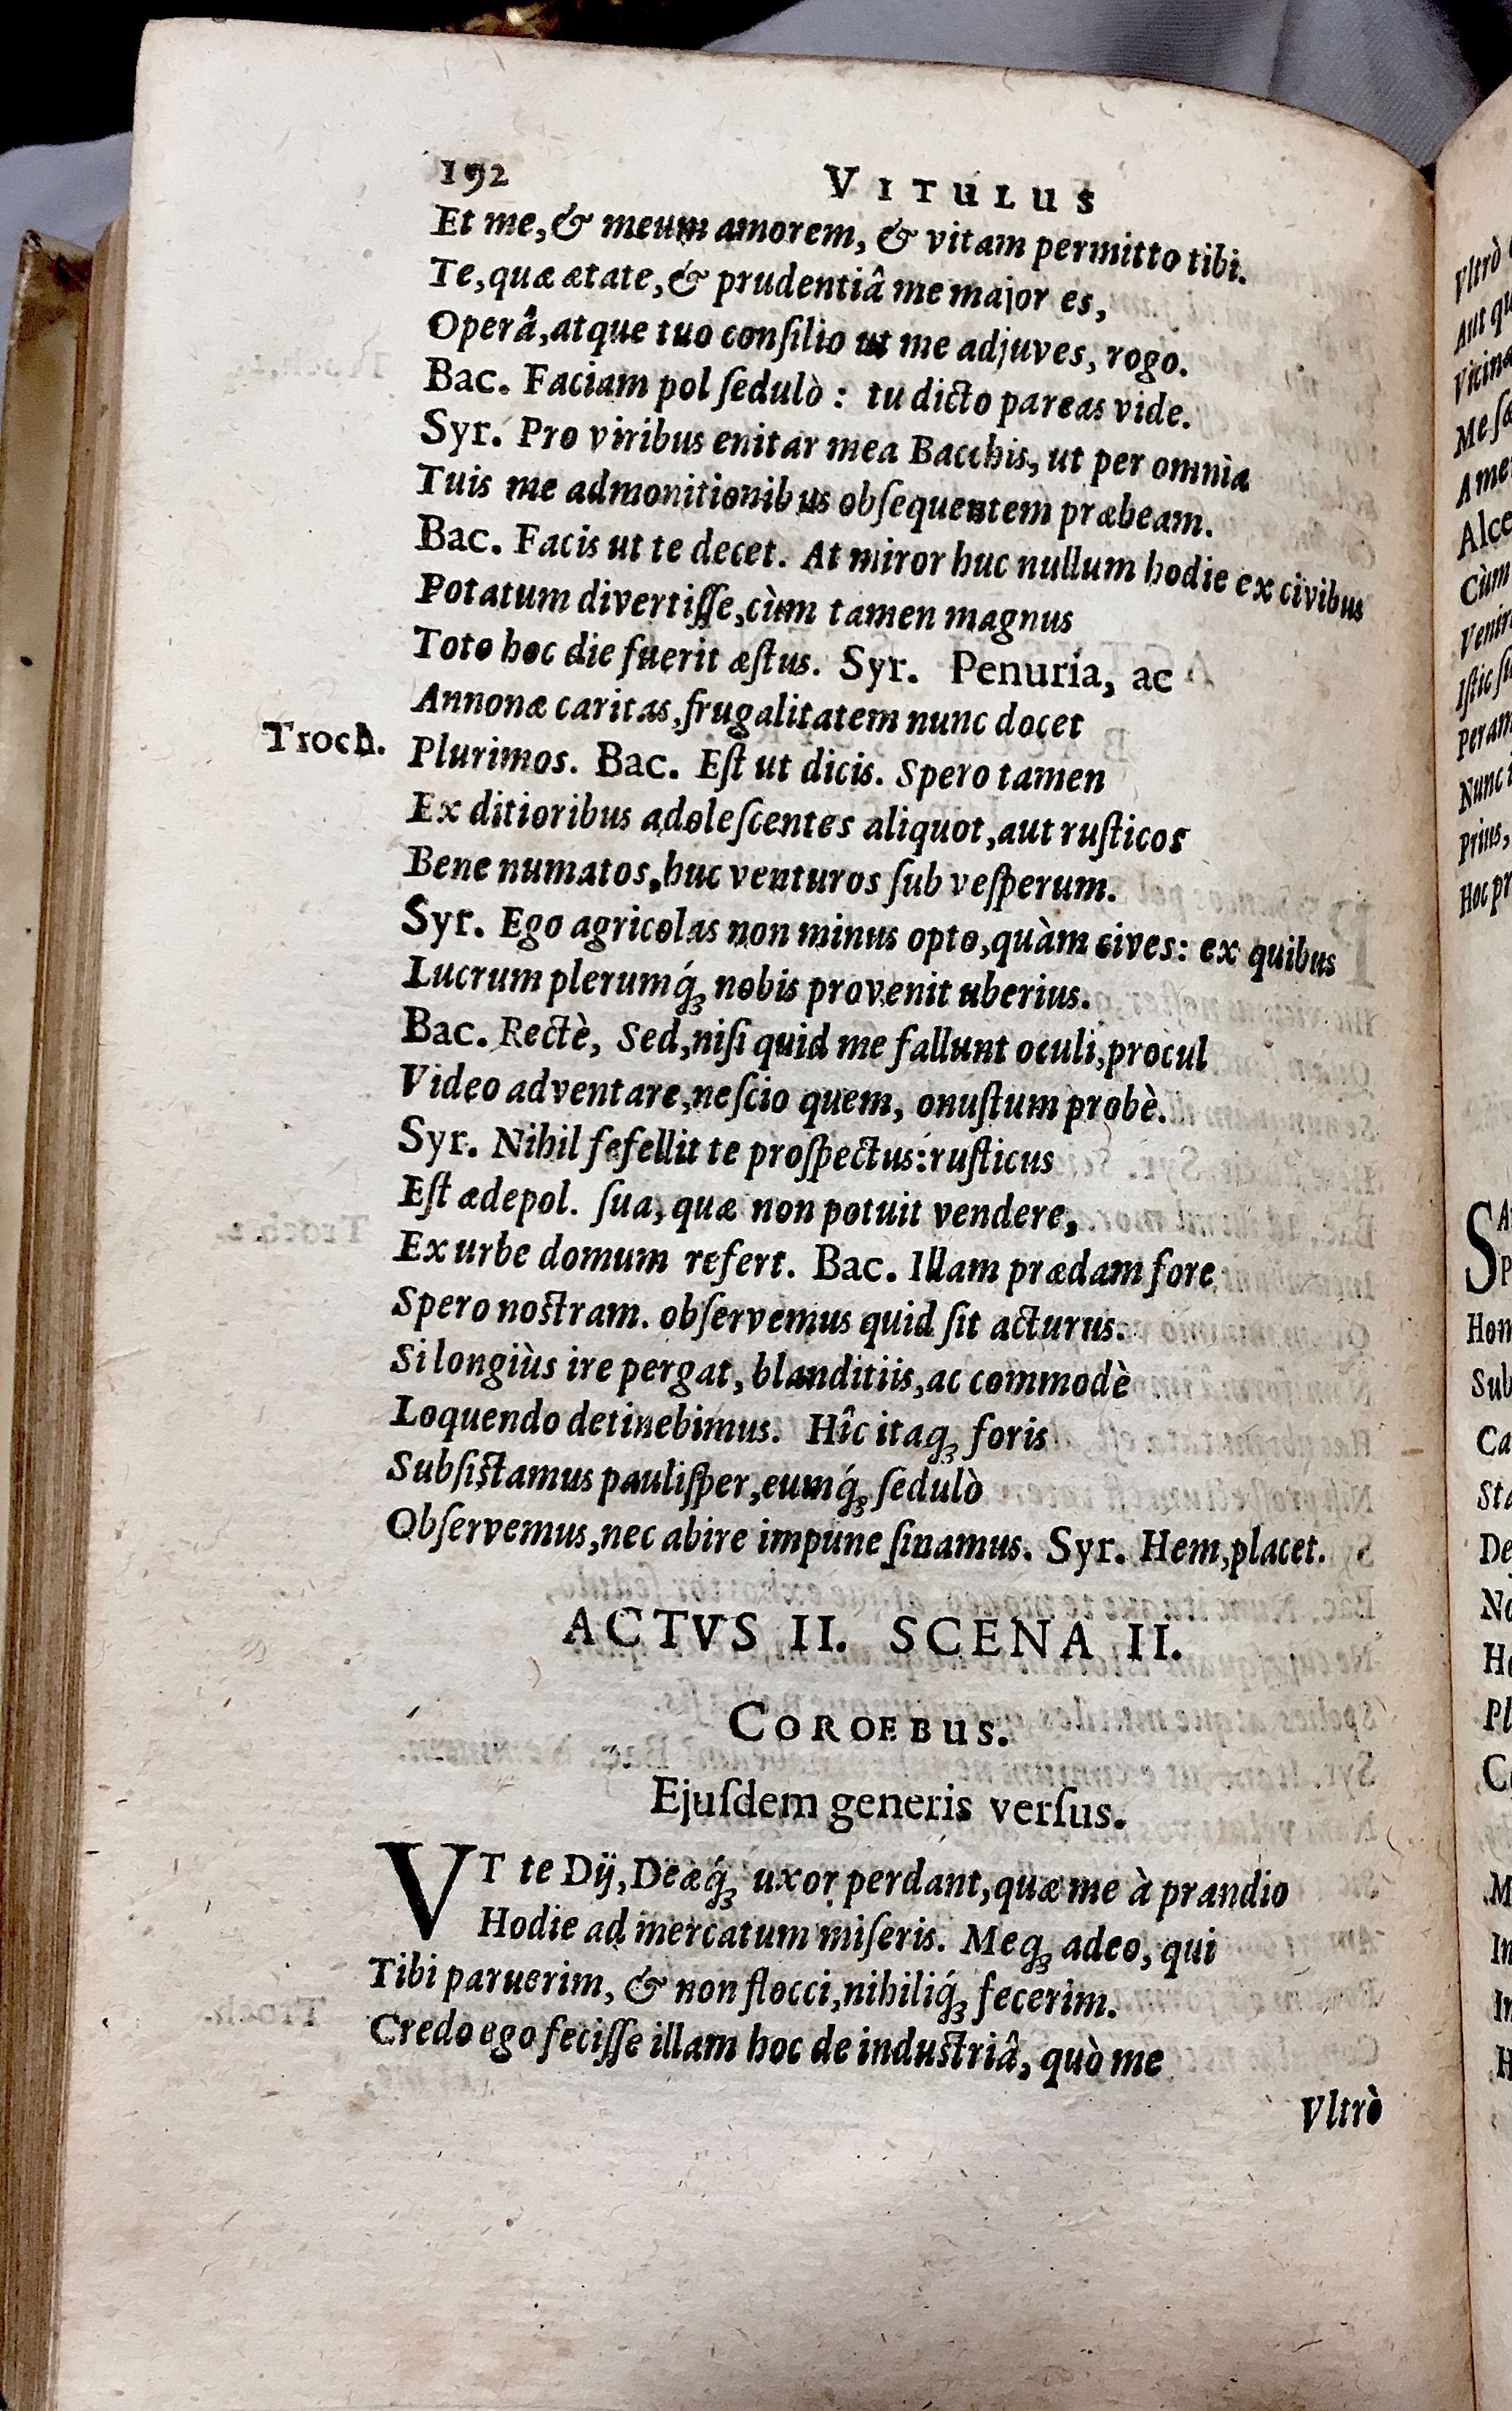 192 VITULUS
Et me,& meum amorem, & vitam permitto tibi.
Te,quæ ætate,& prudentiâ me major es,
Operâ,atque tuo conſilio ut me adjuves, rogo.
Bac. Faciam pol ſedulò : tu dicto pareas vide.
Syr. Pro viribus enitar mea Bacchis, ut per omnia
Tuis me admonitionibus obſequentem præbeam.
Bac. Facis ut te decet. At miror huc nullum hodie ex civibus
Potatum divertiſſe,cùm tamen magnus
Toto hoc die fuerit æſtus. Syr. Penuria, ac
Annonæ caritas,frugalitatem nunc docet
Troch. Plurimos. Bac. Eſt ut dicis. Spero tamen
Ex ditioribus adoleſcentes aliquot,aut ruſticos
Bene numatos,huc venturos ſub veſperum.
Syr. Ego agricolas non minus opto,quàm cives: ex quibus
Lucrum plerumq́; nobis provenit uberius.
Bac. Rectè, Sed,niſi quid me fallunt oculi,procul
Video adventare,neſcio quem, onuſtum probè.
Syr. Nihil fefellit te proſpectus:ruſticus
Eſt ædepol. ſua, quæ non potuit vendere,
Ex urbe domum refert. Bac. Illam prædam fore
Spero noſtram. obſervemus quid ſit acturus.
Si longiùs ire pergat, blanditiis,ac commodè
Loquendo detinebimus. Hîc itaq; foris
Subſiſtamus pauliſper,eumq́; ſedulò
Obſervemus,nec abire impune ſinamus. Syr. Hem,placet.
ACTVS II. SCENA II.
COROEBUS.
Ejuſdem generis verſus.
VT te Dij,Deæq́; uxor perdant,quæ me à prandio
Hodie ad mercatum miſeris. Meq; adeo, qui
Tibi paruerim, & non flocci,nihiliq́; fecerim.
Credo ego feciſſe illam hoc de induſtriâ, quò me
Vltrò
Vltrò
Aut
Vicina
Me
Ame
Alce
Cùm
Venir
Iſtic
Peram
Nunc
Prius,
Hoc pr
Hom
Sub
Ca
Sta
De
No
He
Pl